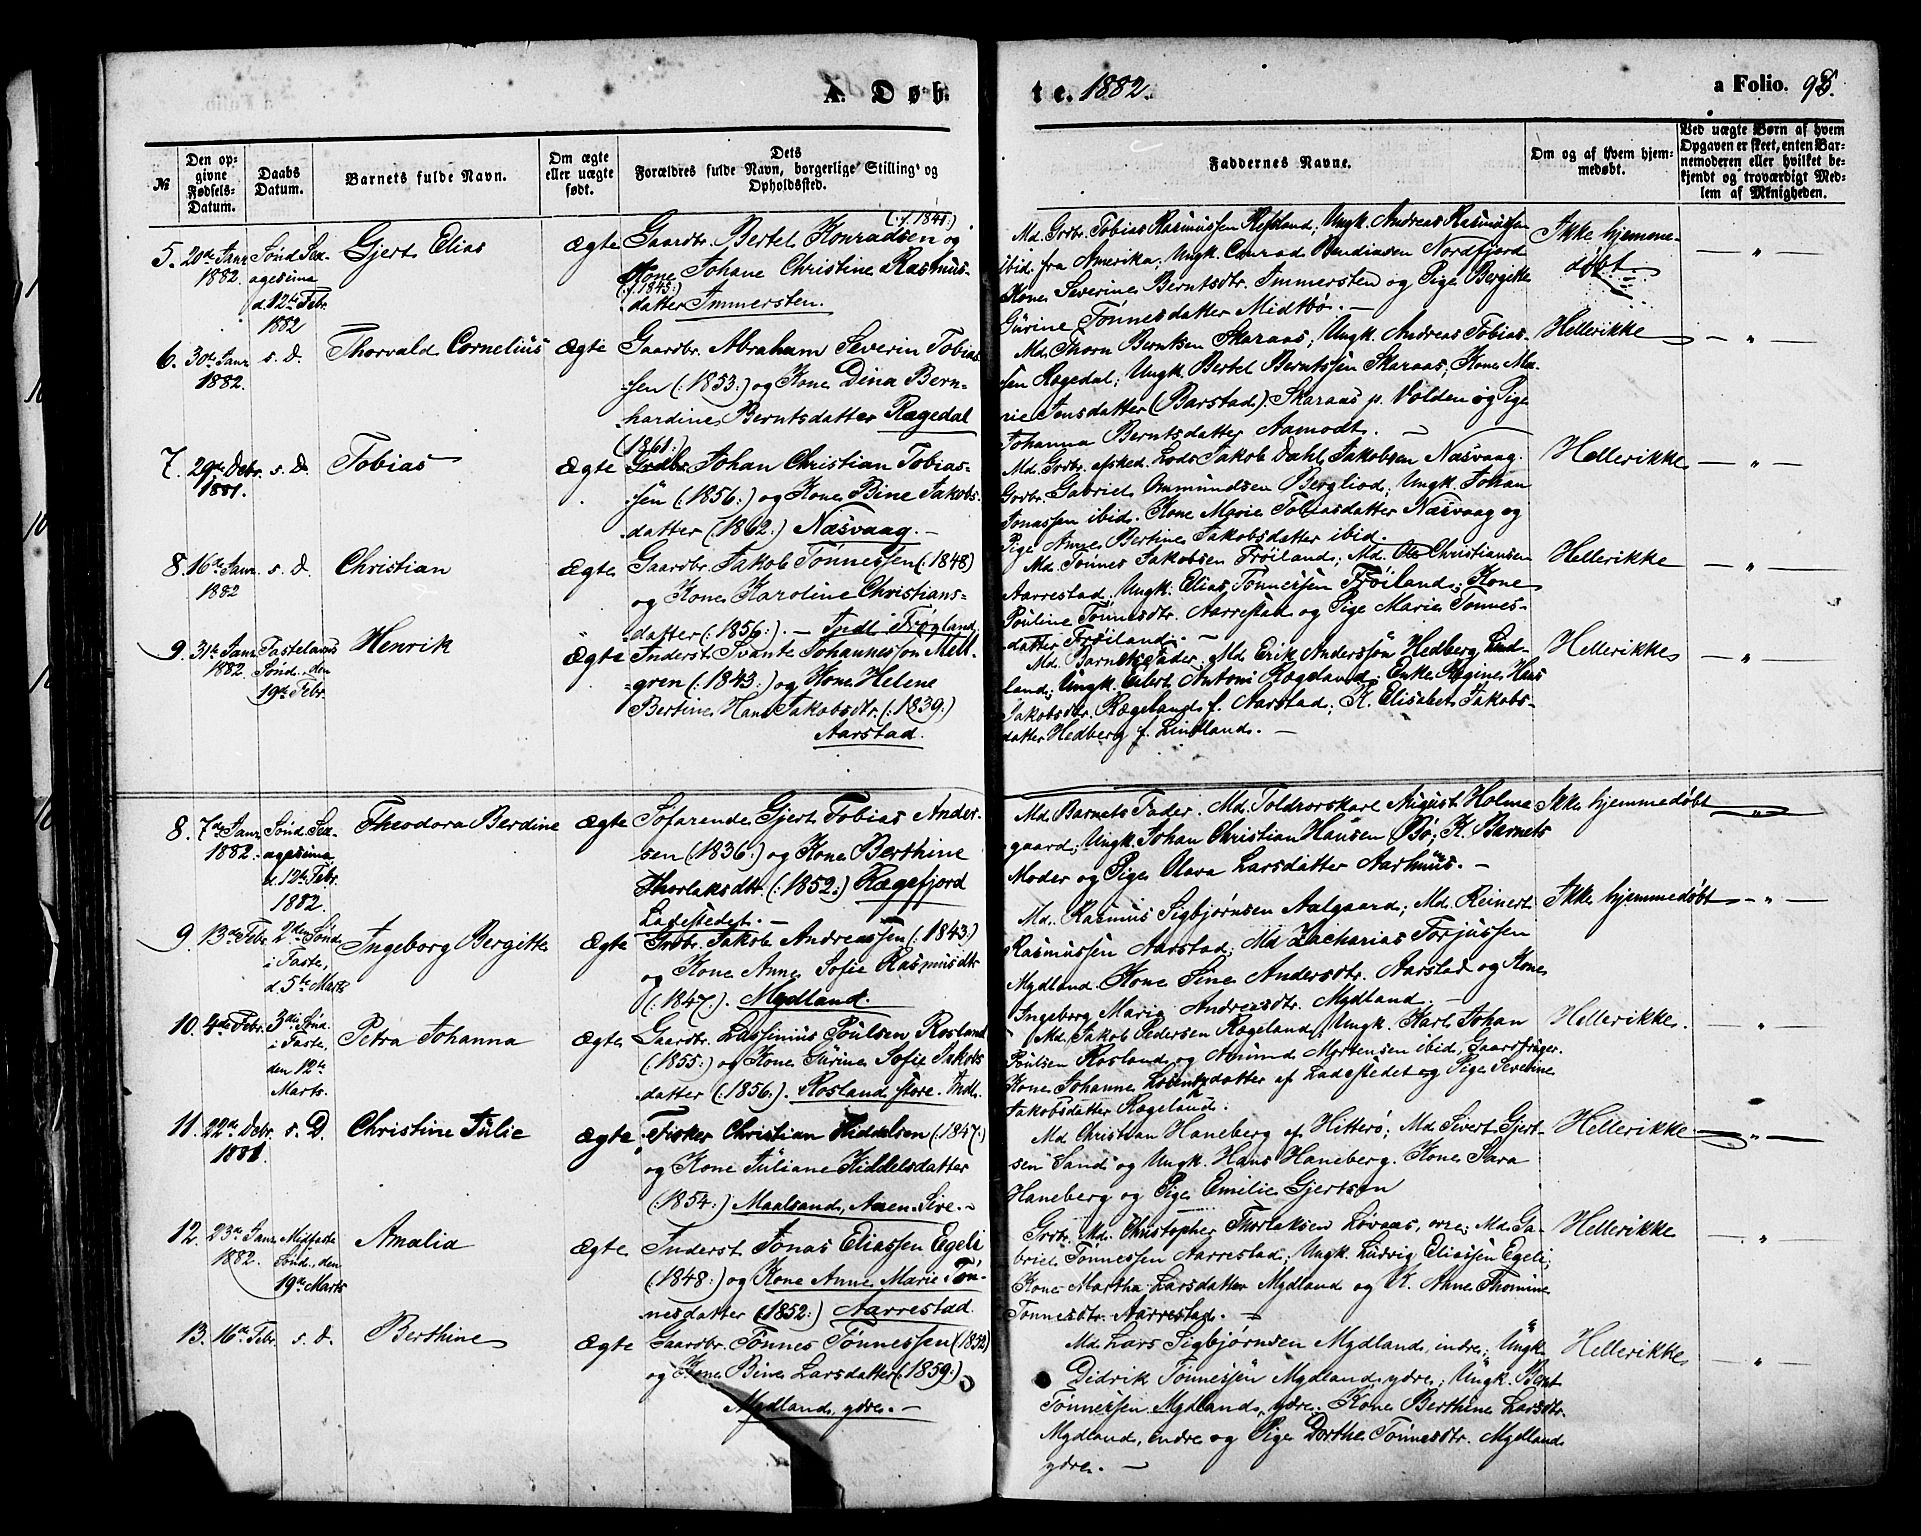 A. Døb-
te. 1882.
a Folio. 98.
№
Den op-
givne
Fødsels-
Datum.
Daabs
Datum.
Barnets fulde Navn.
Om ægte
eller uægte
født.
Dets
Forældres fulde Navn, borgerlige Stilling og
Opholdssted.
Faddernes Navne.
Om og af hvem hjem-
medøbt.
Ved uægte Børn af hvem
Opgaven er skeet, enten Bar-
nemoderen eller hvilket be-
kjendt og troværdigt Med-
lem af Menigheden.
5. 20de Janr
1882.
Sønd Sex-
agesima
d. 12te Febr.
1882
Gjert Elias
Ægte
(: f. 1841:)
Gaardbr. Bertel Konradsen og
Kone Johane Christine Rasmus-
(: f. 1845:)
datter Immersten.
Md. Grbr. Tobias Rasmussen Refsland, Ungk. Andreas Rasmussen
ibid. fra Amerika; Ungk. Conrad Bendiasen Nordfjord
Kone Severine Berntsdtr. Immersten og Pige Bergitte
Gürine Tønnesdatter Midtbø. —
Ikke hjemme-
døbt.
— " —
6. 30te Janr
1882.
s. D.
Thorvald Cornelius
Ægte
Gaardbr. Abraham Severin Tobias-
sen (: 1853:) og Kone Dina Bern-
hardine Berntsdatter Rægedal
Md. Thorn Berntsen Skaraas; Ungk. Andreas Tobias-
sen Rægedal; Ungk. Bertel Berntssen Skaraas, Kone Ma-
rie Jonsdatter (Barstad) Skaraas p. Volden og Pige
Johanna Berntsdatter Aamodt. —
Hellerikke
— " —
7. 29de Debr.
1881.
s. D.
Tobias
Ægte
(1861:)
Grdbr. Johan Christian Tobias-
sen (: 1856:) og Kone Bine Jakobs-
datter (: 1862:) Næsvaag. —
Md. Grbr. afsked. Lods Jakob Dahl Jakobsen Næsvaag.
Grbr. Gabriel Ommundsen Bergliod; Ungk. Johan
Jonassen ibid. Kone Marie Tobiasdatter Næsvaag og
Pige Anne Bertine Jakobsdatter ibid.
Hellerikke
— " —
8. 16te Janr.
1882
s. D.
Christian
Ægte
Gaardbr. Jakob Tønnessen (: 1848)
og Kone Karoline Christians-
datter (: 1856:). — Indl. Frøyland
Md. Tønnes Jakobsen Frøiland; Md. Ole Christiansen
Aarrestad, Ungk. Elias Tønnessen Frøiland; Kone
Pouline Tønnesdtr. Aarrestad og Pige Marie Tønnes-
datter Frøiland. —
Hellerikke
— " —
9. 31te Janr.
1882.
Fastelavns
Sønd. den
19de Febr.
Henrik
Ægte
Inderst Svante Johannesson Mell-
gren (: 1843:) og Kone Helene
Bertine Hans Jakobsdtr. (: 1839:)
Aarstad.
Md. Barnets Fader, Md. Erik Anderssøn Hedberg Lind-
land; Ungk. Eilert Antoni Rægeland; Enke Regine Hans
Jakobsdtr. Rægeland f. Aarstad; K. Elisabet Jakobs-
datter Hedberg f. Lindland. —
Hellerikke
— " —
8. 7de Janr.
1882.
Sønd. Sex-
agesima
d. 12te Febr.
1882.
Theodora Berdine
Ægte
Søfarende Gjert Tobias Ander-
sen (1836:) og Kone Berthine
Thorlaksdtr. (: 1852:) Rægefjord
Ladestedet. —
Md. Barnets Fader. Md. Toldrorskarl August Holme-
gaard; Ungk. Johan Christian Hansen Bø; K. Barnets
Moder og Pige Olava Larsdatter Aarhuus. —
Ikke hjemmedøbt
— " —
9. 13de Febr.
2den Sønd.
i Faste,
d. 5te Marts
Ingeborg Bergitte
Ægte
Grbr. Jakob Andreassen (: 1843:)
og Kone Anne Sofie Rasmusdtr
(: 1847:). Mydland.
Md. Rasmus Sigbjørnsen Aalgaard; Md. Reinert
Rasmussen Aarstad; Md Zacharias Torjussen
Mydland. Kone Sine Andersdtr. Aarstad og Kone
Ingeborg Marie Andreasdtr. Mydland. —
Ikke hjemmedøbt
— " —
10. 4de Febr.
3die Sønd.
i Faste,
den 12te
Marts.
Petra Johanna
Ægte
Gaardbr. Lassinius Poulsen Rosland
(1855:) og Kone Gürine Sofie Jakobs-
datter (: 1856:). Rosland store. Indl.
Md. Jakob Pedersen Rægeland, Ungk. Karl Johan
Poulsen Rosland og Amund Mortensen ibid, Gaardbruger.
Kone Johanne Lorentzdatter af Ladestedet og Pige Severine
Jakobsdatter Rægeland.
Hellerikke.
— " —
11. 22de Debr.
1881.
s. D.
Christine Julie
Ægte
Fisker Christian Kiddelsen (: 1847:)
og Kone Juliane Kiddelsdatter
(1854:) Maalsand, Aaen-Sire. —
Md Christian Haneberg af Hitterø; Md Sivert Gjert-
sen Sand og Ungk. Hans Haneberg. Kone Sara
Haneberg og Pige Emilie Gjertsen
Hellerikke
— " —
12. 23de Janr.
1882.
Midfaste
Sønd. den
19de Marts
Amalia
Ægte
Inderst Jonas Eliassen Egeli
(1848:) og Kone Anne Marie Tøn-
nesdatter (1852:) Aarrestad.
Grbr. Md. Christopher Thorlaksen Løvaas, øvre; Md. Ga-
briel Tønnessen Aarrestad; Ungk. Ludvig Eliassen Egeli;
Kone Martha Larsdatter Mydland og K. Anne Thomine
Tønnesdtr. Aarrestad. —
Hellerikke
— "
13. 16de Febr.
s. D.
Berthine
Ægte
Gaardbr. Tønnes Tønnessen (1852)
og Kone Bine Larsdatter (: 1859:)
Mydland, ydre. —
Md. Lars Sigbjørnsen Mydland, indre; Ungk
Didrik Tønnessen Mydland ydre; Ungk. Bent
Tønnessen Mydland, ydre. Kone Berthine Larsdtr.
Mydland, indre og Pige Dorthe Tønnesdtr. Mydland
ydre. —
Hellerikke
— " —